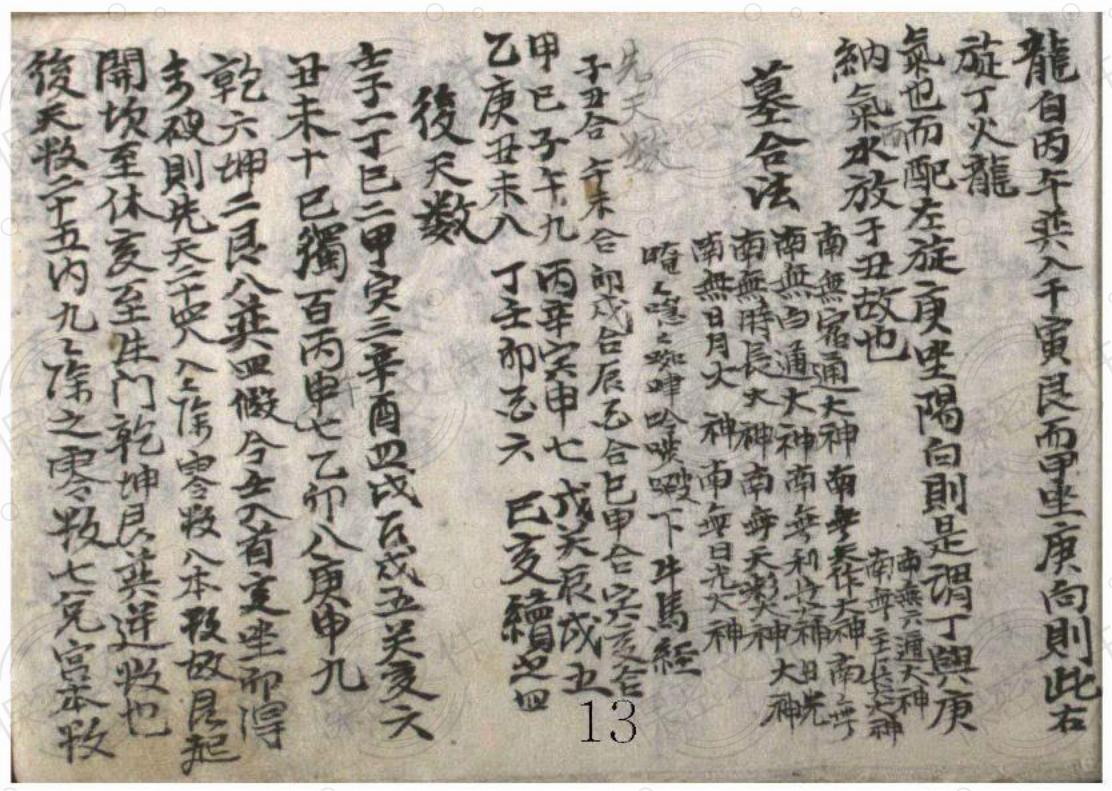 龍自丙午巽入于寅艮而甲坐庚向則此右
旋丁火龍
氣也而配左旋庚坐陽向則是謂丁與庚
納氣水放于丑故也
南無六通大神
南無主長大神
南無宿通大神南無天作大神南無
南無白通大神南無 日光
南無時長大神南無天 神 大神
南無日月火神南無日光大神
唵 下牛馬經
墓合法
先天數
子丑合午未合卯戌合辰酉合巳申合寅亥合
甲己子午九 丙辛寅申七 戊癸辰戌五
乙庚丑未八 丁壬卯酉六 巳亥續之四
後天數
壬子一丁巳二甲寅三辛酉四戊辰戌五癸亥六
丑未十己獨百丙申七乙卯八庚申九
乾六坤二艮八巽四假令壬入首亥坐而得
未破則先天二十四內八八除零數八本數故艮起
開坎至休亥至生門乾坤艮巽逆數也
後天數二十五內九九除之零數七兌宮本數
13